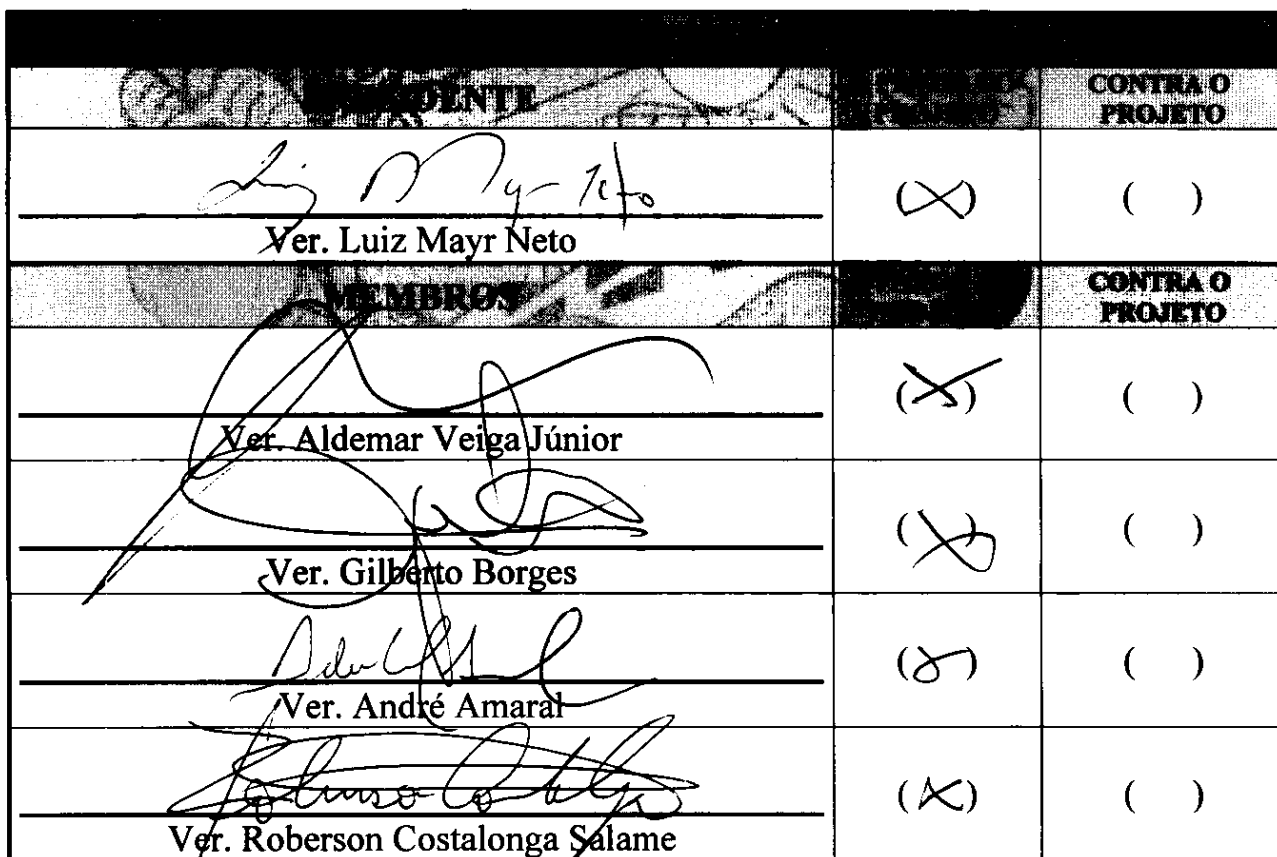 PRESIDENTE CONTRA O
PROJETO
(X) ( )
Ver. Luiz Mayr Neto
MEMBROS CONTRA O
PROJETO
(X) ( )
Ver. Aldemar Veiga Júnior
(X) ( )
Ver. Gilberto Borges
(X) ( )
Ver. André Amaral
(X) ( )
Ver. Roberson Costalonga Salame